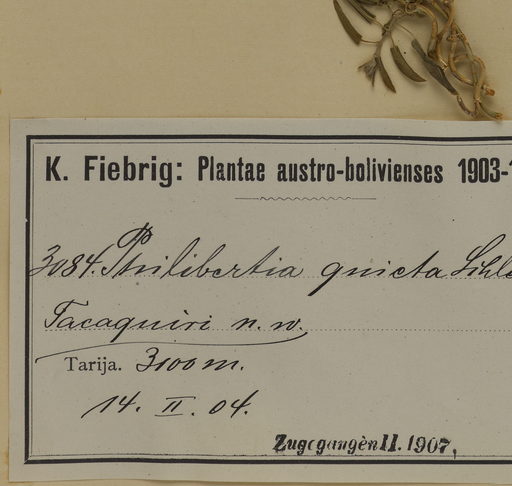 K. Fiebrig: Plantae austro-bolivienses 1903-
3084. Philibertia quieta Schle
Tacaquiri n. w.
Tarija. 3100 m.
14. II. 04.
Zugegangen II. 1907,